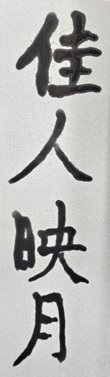 佳人映月